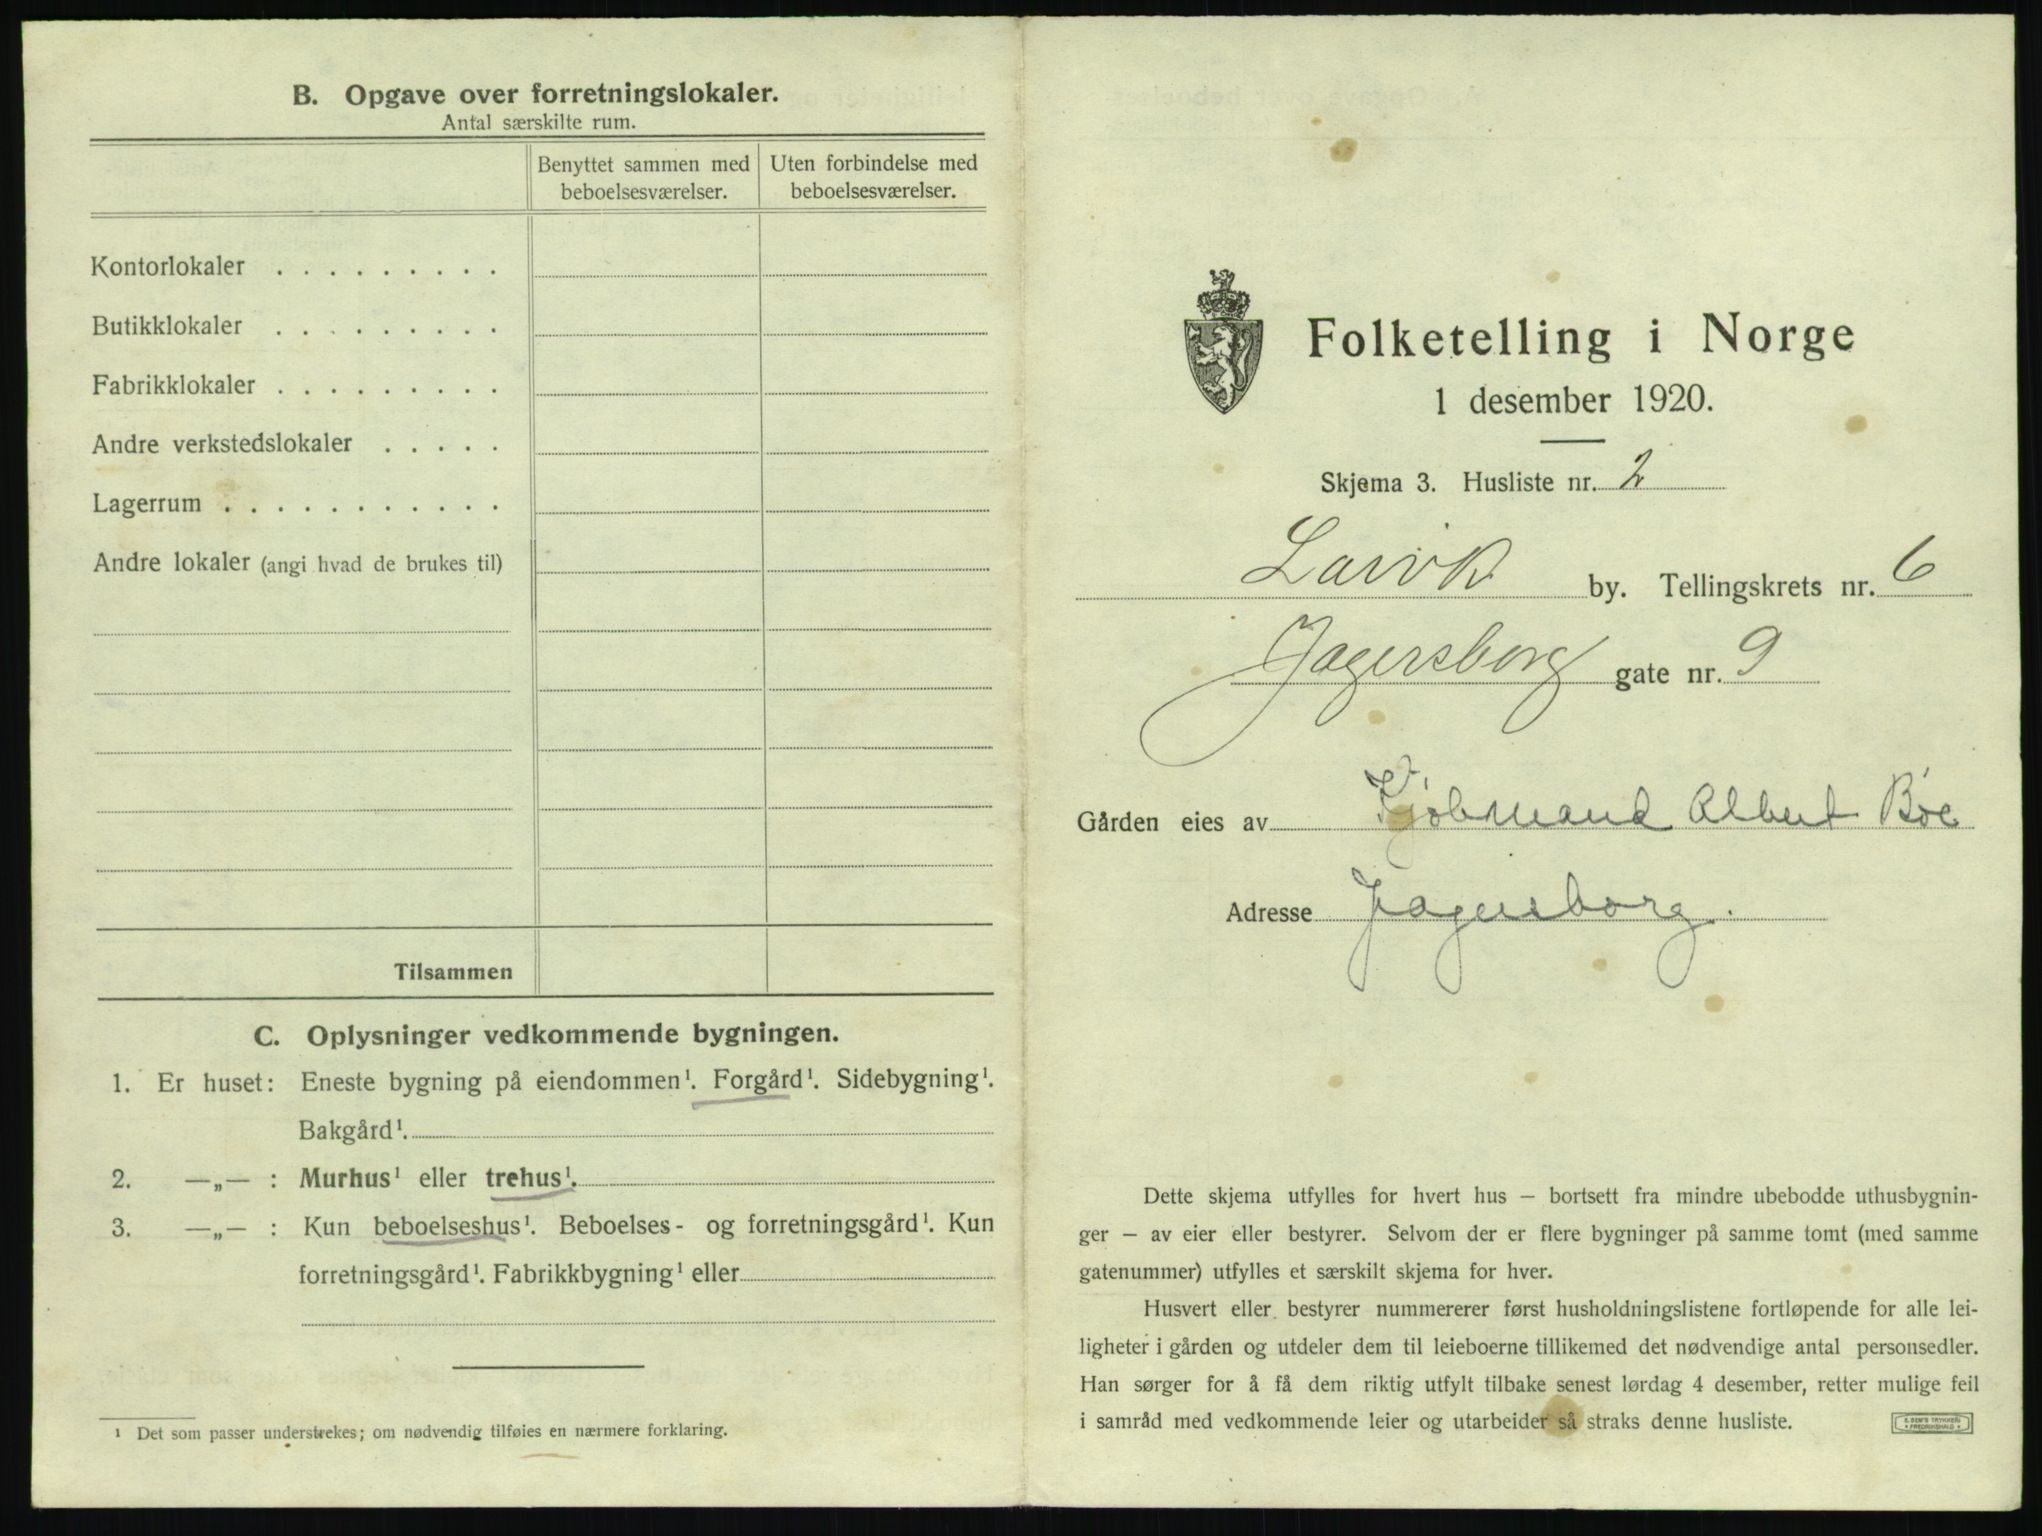 B. Opgave over forretningslokaler.
Antal særskilte rum.
Benyttet sammen med beboelsesværelser.
Uten forbindelse med beboelsesværelser.
Kontorlokaler . . . . . . . . .
Butikklokaler . . . . . . . . .
Fabrikklokaler . . . . . . . . .
Andre verkstedslokaler . . . . .
Lagerrum . . . . . . . . . . .
Andre lokaler (angi hvad de brukes til)
Tilsammen
C. Oplysninger vedkommende bygningen.
1. Er huset: Eneste bygning på eiendommen¹. Forgård¹. Sidebygning¹.
Bakgård¹.
2. —„— : Murhus¹ eller trehus¹.
3. —„— : Kun beboelseshus¹. Beboelses- og forretningsgård¹. Kun
forretningsgård¹. Fabrikkbygning¹ eller
¹ Det som passer understrekes; om nødvendig tilføies en nærmere forklaring.
Folketelling i Norge
1 desember 1920.
Skjema 3. Husliste nr. 2
Larvik by. Tellingskrets nr. 6
Jagersborg gate nr. 9
Gården eies av Kjøbmand Albert Böe
Adresse Jagersborg.
Dette skjema utfylles for hvert hus – bortsett fra mindre ubebodde uthusbygnin-
ger – av eier eller bestyrer. Selvom der er flere bygninger på samme tomt (med samme
gatenummer) utfylles et særskilt skjema for hver.
Husvert eller bestyrer nummererer først husholdningslistene fortløpende for alle lei-
ligheter i gården og utdeler dem til leieboerne tillikemed det nødvendige antal personsedler.
Han sørger for å få dem riktig utfylt tilbake senest lørdag 4 desember, retter mulige feil
i samråd med vedkommende leier og utarbeider så straks denne husliste.